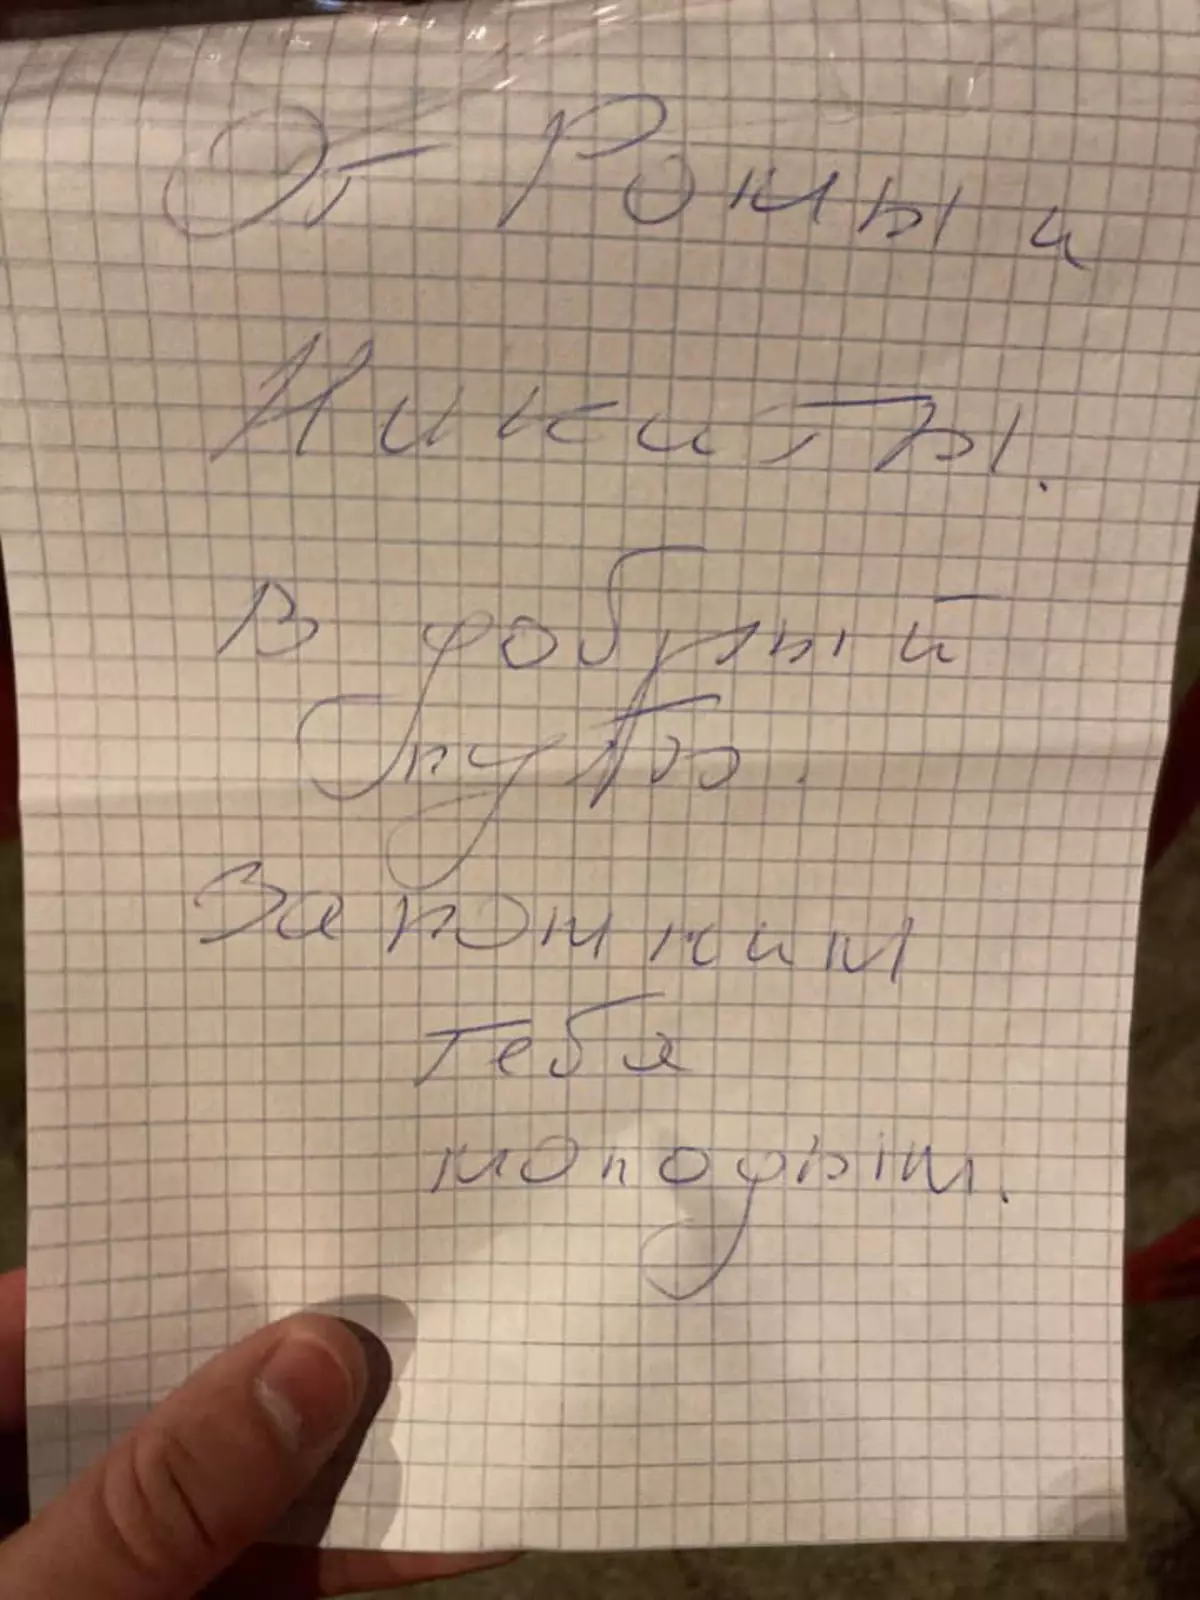 От Ромы и
Никиты.
В добрый
путь.
Запомним
тебя
молодым.